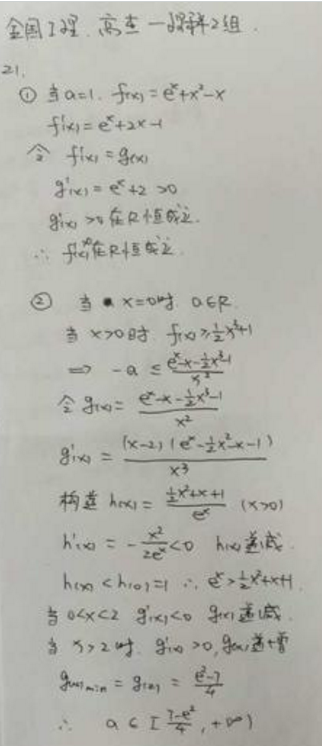 全国I理. 高考一
21.
① 当a=1. f(x)=e^x+x²-x
f'(x)=e^x+2x-1
令 f'(x)=g(x)
g'(x)=e^x+2>0
g'(x)>0在R恒成立.
∴ f'(x)在R恒成立
② 当 x=0时 a∈R.
当 x>0时 f(x)≥½x³+1
⇒ -a ≤ (e^x-x-½x³-1)/x²
令g(x)= (e^x-x-½x³-1)/x²
g'(x)= (x-2)(e^x-½x²-x-1)/x³
构造 h(x)= (½x²+x+1)/e^x (x>0)
h'(x)= -x²/2e^x<0 h(x)递减.
h(x)<h(0)=1 ∴ e^x>½x²+x+1.
当 0<x<2 g'(x)<0 g(x)递减.
当 x>2时. g'(x)>0, g(x)递增
g(x)min=g(2)= (e²-7)/4
∴ a∈[(7-e²)/4, +∞)